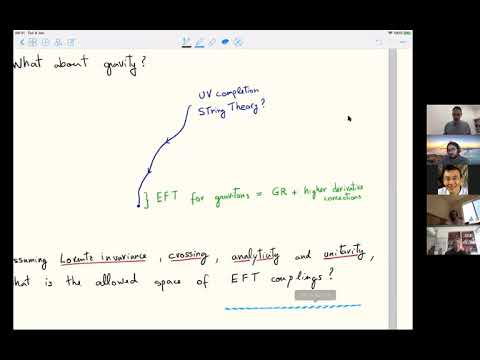 What about gravity?
UV completion
String Theory?
} EFT for gravitons = GR + higher derivative
corrections
ssuming Lorentz invariance, crossing, analyticity and unitarity,
hat is the allowed space of EFT couplings?